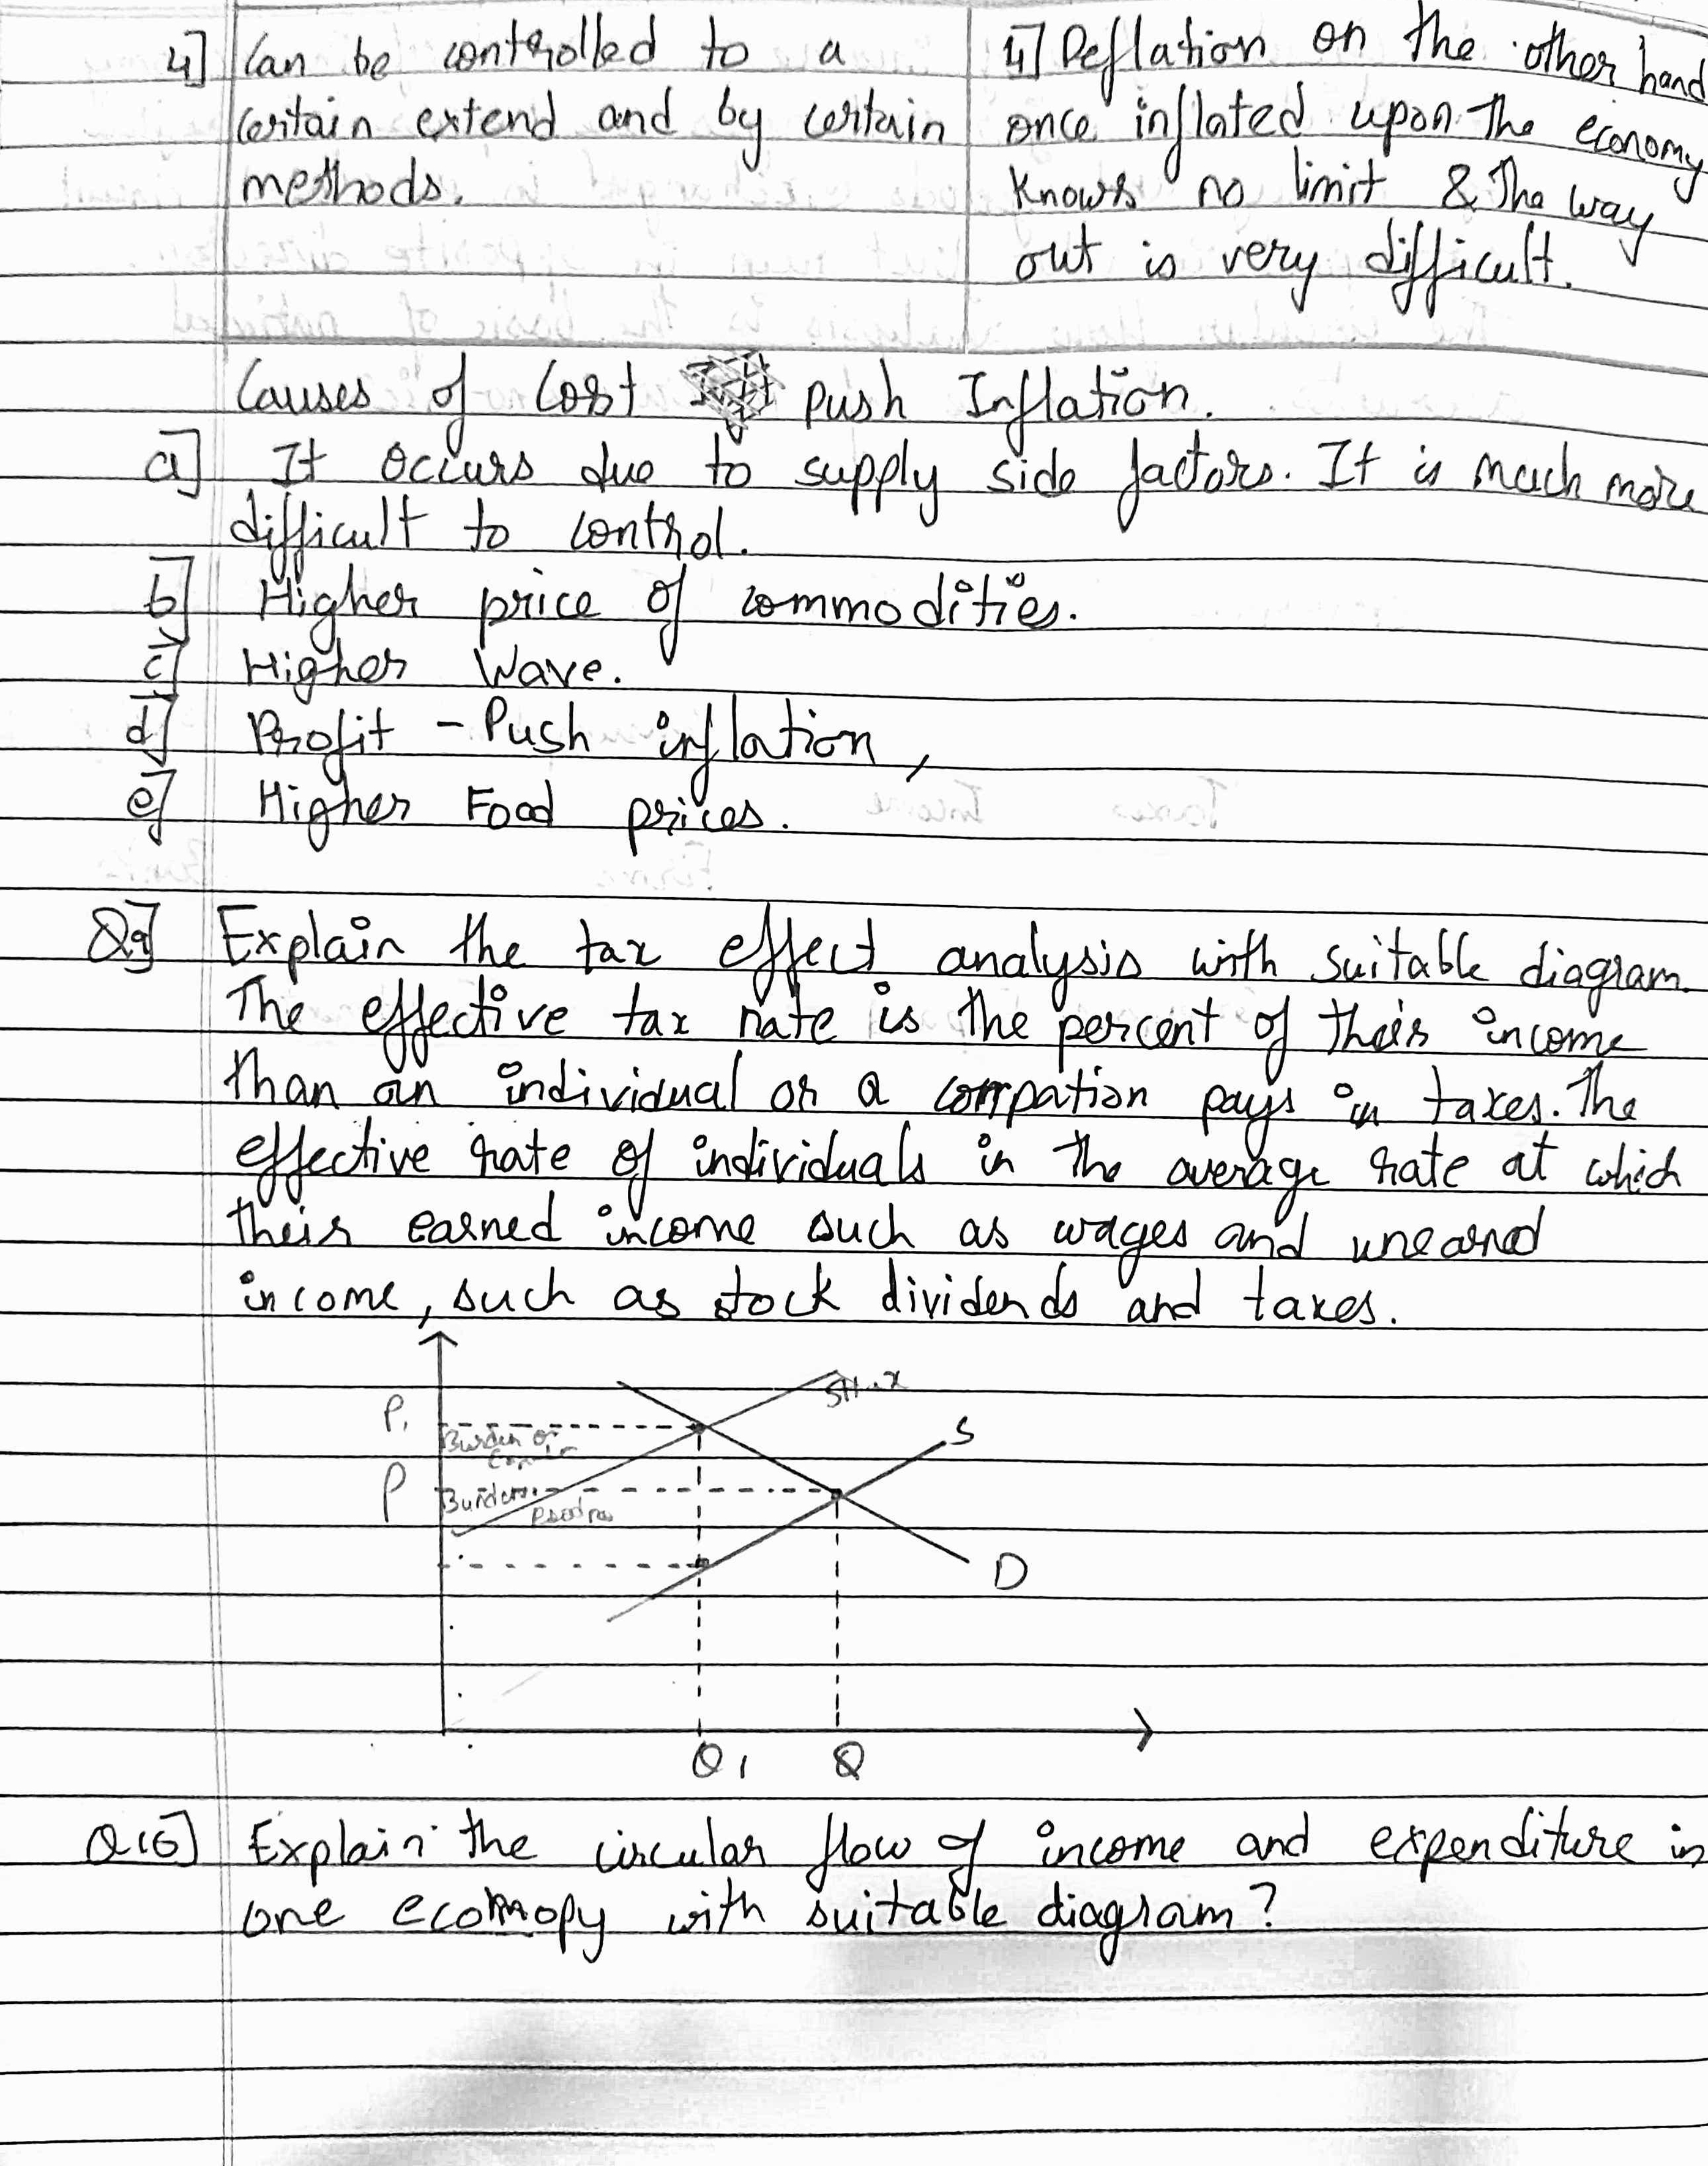 4] Can be controlled to a
certain extend and by certain
methods.
4] Deflation on the other hand
once inflated upon the economy
knows no limit & The way
out is very difficult.
Causes of Cost Push Inflation.
a] It occurs due to supply side factors. It is much more
difficult to control.
b] Higher price of commodities.
c] Higher Wave.
d] Profit - Push inflation,
e] Higher Food prices.
Q9] Explain the tax effect analysis with suitable diagram.
The effective tax rate is the percent of their income
than an individual or a corrpation pays in taxes. The
effective rate of individuals in the average rate at which
their earned income such as wages and unearnd
income, such as stock dividends and taxes.
S
P1
Burden of
P
Burden
D
Q1 Q
Explain the circular flow of income and expenditure in
one with suitable diagram?